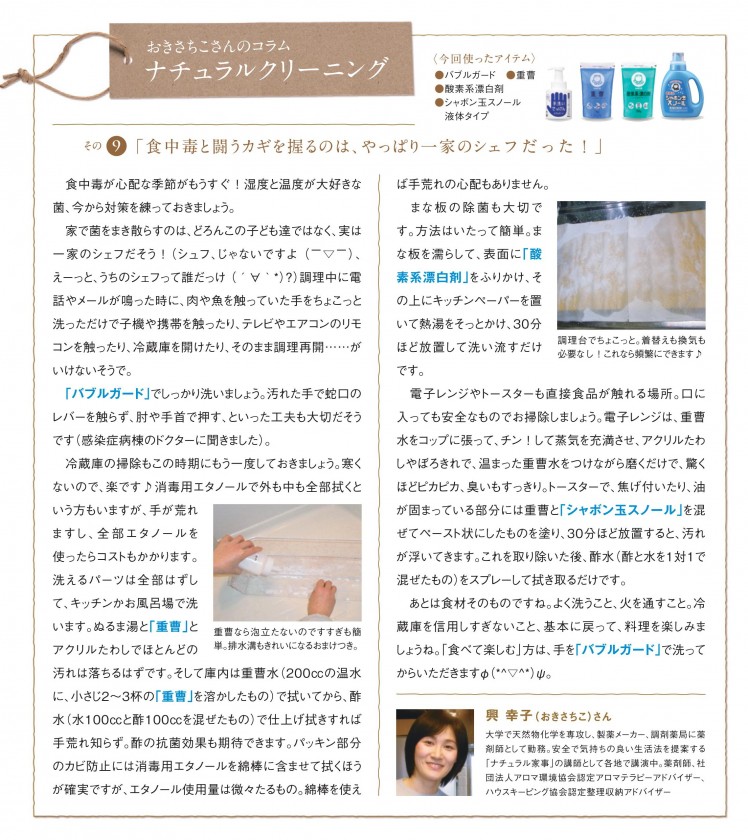 おきさちこさんのコラム
ナチュラルクリーニング
〈今回使ったアイテム〉
●バブルガード ●重曹
●酸素系漂白剤
●シャボン玉スノール
液体タイプ
その9「食中毒と闘うカギを握るのは、やっぱり一家のシェフだった！」
食中毒が心配な季節がもうすぐ！湿度と温度が大好きな
菌、今から対策を練っておきましょう。
家で菌をまき散らすのは、どろんこの子ども達ではなく、実は
一家のシェフだそう！（シュフ、じゃないですよ（￣▽￣）、
えーっと、うちのシェフって誰だっけ（´∀｀*）？）調理中に電
話やメールが鳴った時に、肉や魚を触っていた手をちょこっと
洗っただけで子機や携帯を触ったり、テレビやエアコンのリモ
コンを触ったり、冷蔵庫を開けたり、そのまま調理再開……が
いけないそうで。
「バブルガード」でしっかり洗いましょう。汚れた手で蛇口の
レバーを触らず、肘や手首で押す、といった工夫も大切だそう
です（感染症病棟のドクターに聞きました）。
冷蔵庫の掃除もこの時期にもう一度しておきましょう。寒く
ないので、楽です♪消毒用エタノールで外も中も全部拭くと
いう方もいますが、手が荒れ
ますし、全部エタノールを
使ったらコストもかかります。
洗えるパーツは全部はずし
て、キッチンかお風呂場で洗
います。ぬるま湯と「重曹」と
アクリルたわしでほとんどの
汚れは落ちるはずです。そして庫内は重曹水（200ccの温水
に、小さじ2〜3杯の「重曹」を溶かしたもの）で拭いてから、酢
水（水100ccと酢100ccを混ぜたもの）で仕上げ拭きすれば
手荒れ知らず。酢の抗菌効果も期待できます。パッキン部分
のカビ防止には消毒用エタノールを綿棒に含ませて拭くほう
が確実ですが、エタノール使用量は微々たるもの。綿棒を使え
重曹なら泡立たないのですすぎも簡
単。排水溝もきれいになるおまけつき。
ば手荒れの心配もありません。
まな板の除菌も大切で
す。方法はいたって簡単。ま
な板を濡らして、表面に「酸
素系漂白剤」をふりかけ、そ
の上にキッチンペーパーを置
いて熱湯をそっとかけ、30分
ほど放置して洗い流すだけ
です。
調理台でちょこっと。着替えも換気も
必要なし！これなら頻繁にできます♪
電子レンジやトースターも直接食品が触れる場所。口に
入っても安全なものでお掃除しましょう。電子レンジは、重曹
水をコップに張って、チン！して蒸気を充満させ、アクリルたわ
しやぼろきれで、温まった重曹水をつけながら磨くだけで、驚く
ほどピカピカ、臭いもすっきり。トースターで、焦げ付いたり、油
が固まっている部分には重曹と「シャボン玉スノール」を混
ぜてペースト状にしたものを塗り、30分ほど放置すると、汚れ
が浮いてきます。これを取り除いた後、酢水（酢と水を1対1で
混ぜたもの）をスプレーして拭き取るだけです。
あとは食材そのものですね。よく洗うこと、火を通すこと。冷
蔵庫を信用しすぎないこと、基本に戻って、料理を楽しみま
しょうね。「食べて楽しむ」方は、手を「バブルガード」で洗って
からいただきますφ（*^▽^*）ψ。
興 幸子（おきさちこ）さん
大学で天然物化学を専攻し、製薬メーカー、調剤薬局に薬
剤師として勤務。安全で気持ちの良い生活法を提案する
「ナチュラル家事」の講師として各地で講演中。薬剤師、社
団法人アロマ環境協会認定アロマテラピーアドバイザー、
ハウスキーピング協会認定整理収納アドバイザー